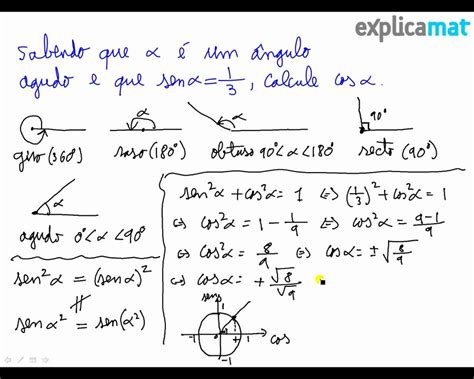 explicamat
Sabendo que α é um ângulo
agudo e que senα = 1/3, calcule cosα.
α α 90°
giro (360°) raso (180°) obtuso 90°<α<180° recto (90°)
α
agudo 0°<α<90°
sen²α = (senα)²
senα² = sen(α²)
sen²α + cos²α = 1 ⇔ (1/3)² + cos²α = 1
⇔ cos²α = 1 - 1/9 ⇔ cos²α = (9-1)/9
⇔ cos²α = 8/9 ⇔ cosα = ±√(8/9)
⇔ cosα = +√8/√9
sen
1
-1 + 1 cos
-1